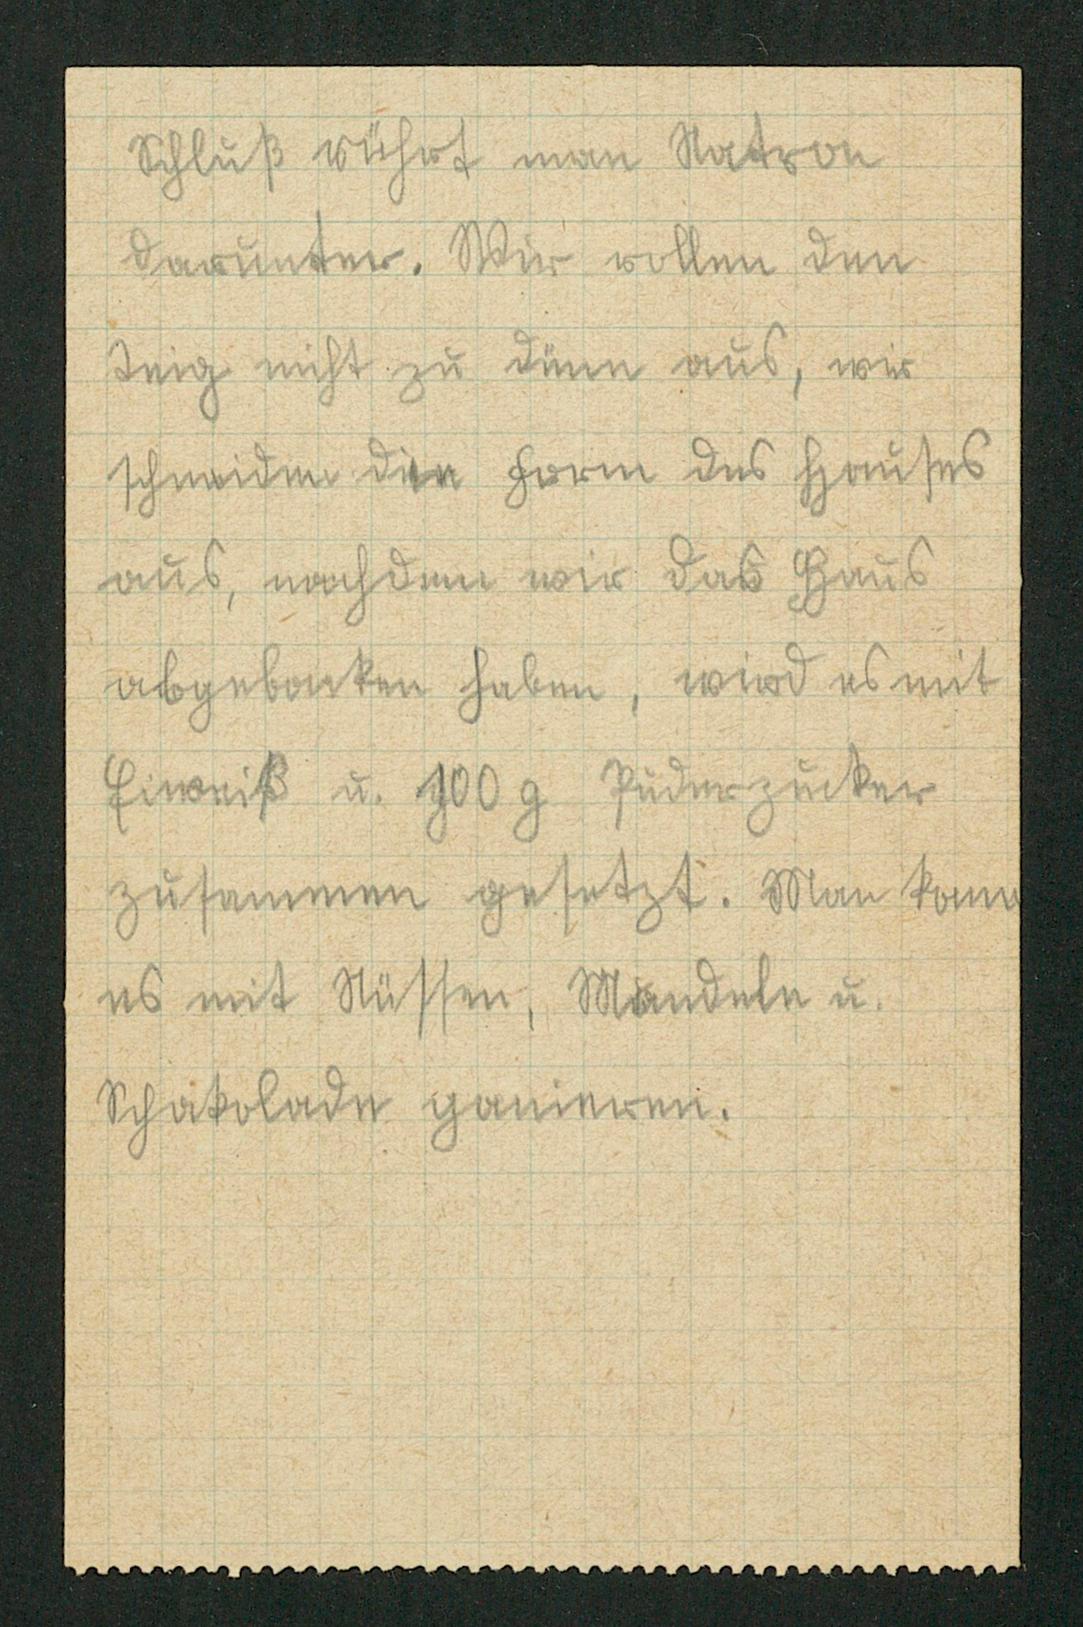 Schluß rührt man Natron
darunter. Wir rollen den
Teig nicht zu dünn aus, wir
schneiden die Form des Hauses
aus, nachdem wir das Haus
abgebacken haben, wird es mit
Eiweiß u. 100 g Puderzucker
zusammen gesetzt. Man kann
es mit Nüssen, Mandeln u.
Schakolade ganieren.